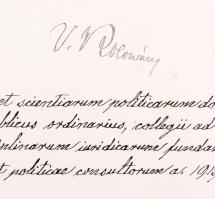 et scientiarum politicarum d
blicus ordinarius, collegii ad
plinarum iuridicarum fundam
t politicae consultorum a. 19